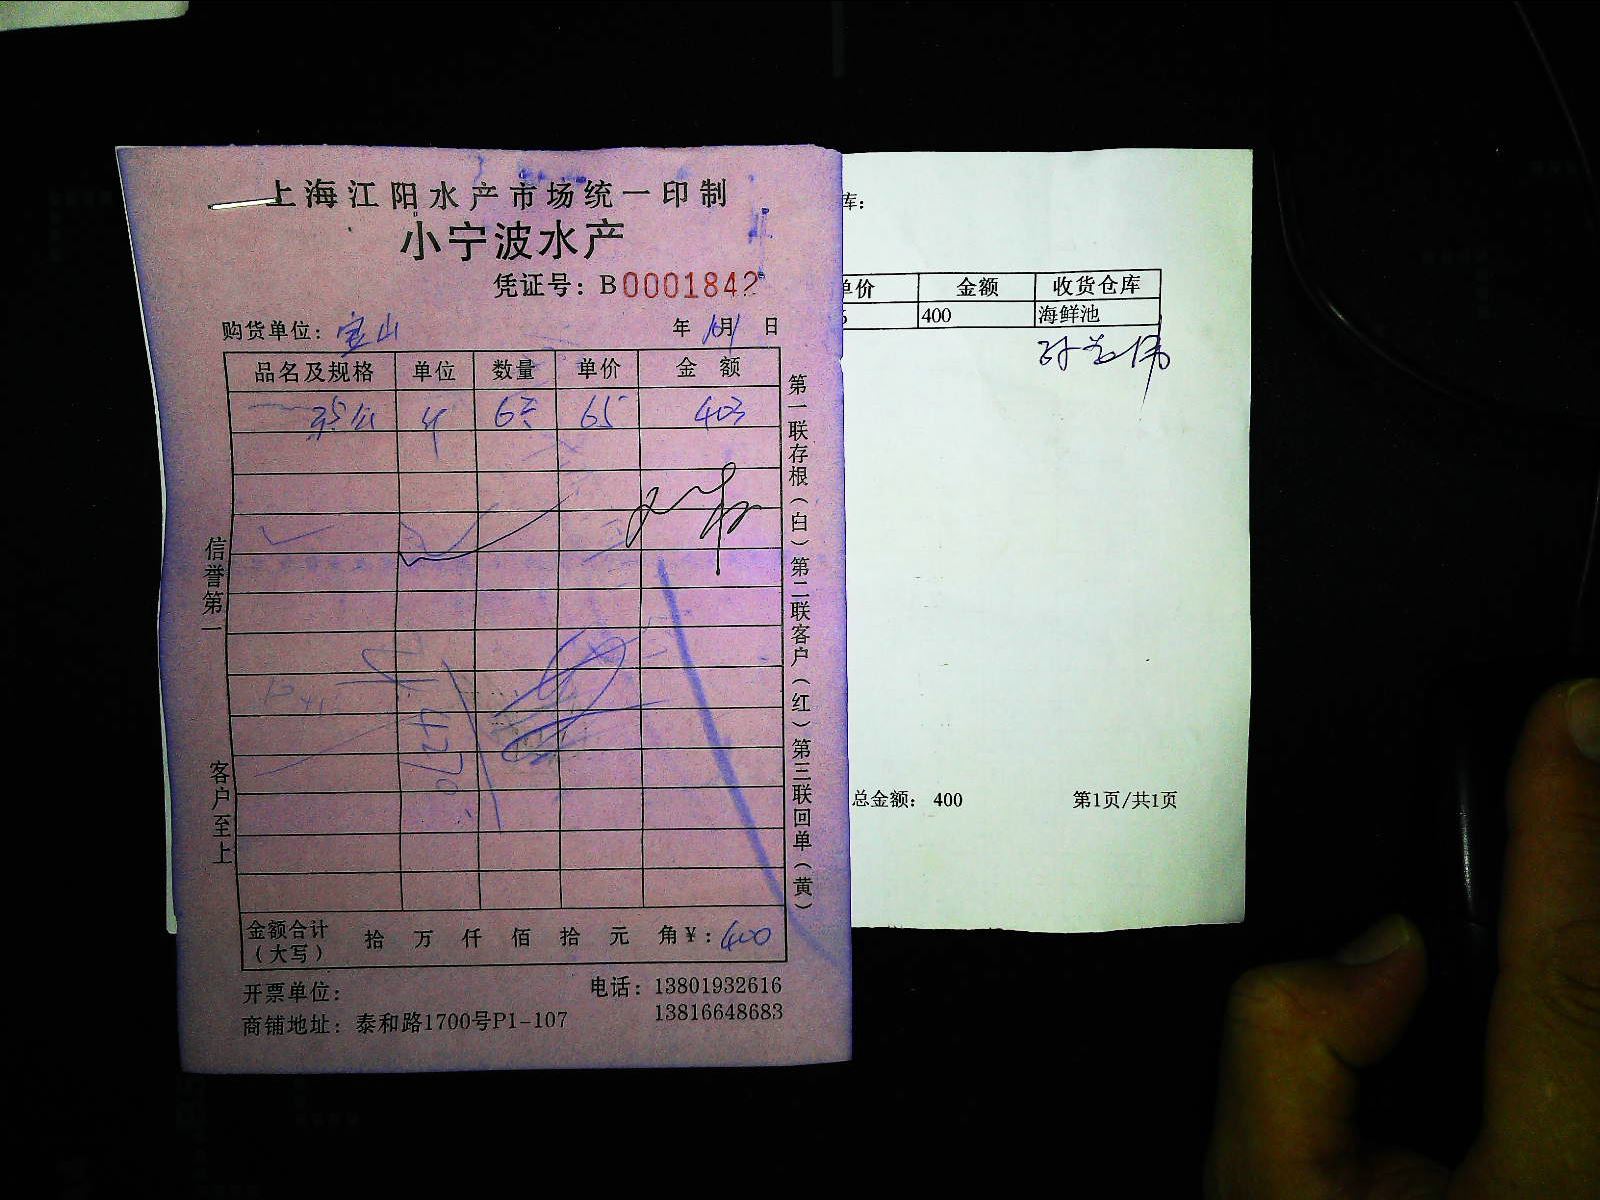 上海江阳水产市场统一印制
小宁波水产
凭证号：B0001842
购货单位：宝山 年 月 日
品名及规格 单位 数量 单价 金额
65 403
金额合计（大写） 拾 万 仟 佰 拾 元 角 ¥：400
开票单位： 电话：13801932616
13816648683
商铺地址：泰和路1700号P1-107
信誉第一 客户至上
第一联存根（白）第二联客户（红）第三联回单（黄）
库：
单价 金额 收货仓库
400 海鲜池
总金额： 400 第1页/共1页